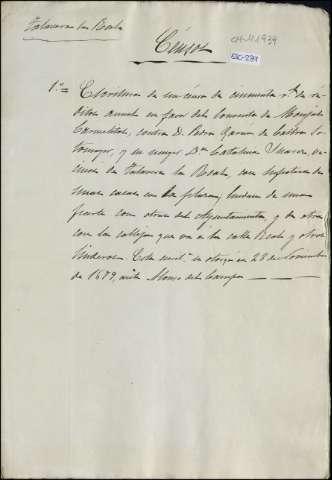 Talavera la Real
CM-11939
Censos
ESC-291
1º= Escritura de un censo de cincuenta rs. de ré-
ditos anual en favor del Convento de Monjas
Carmelitas, contra D. Pedro García de Castro
y su muger Dª Catalina Suarez, ve-
cinos de Talavera la Real, con hipoteca de
unas casas en la plaza; lindan de una
parte con otras del Ayuntamiento y de otra
con la calleja que va a la calle Real y otros
linderos. Esta escrit. se otorgó en 28 de Noviembre
de 1679, ante Alonso del Campo